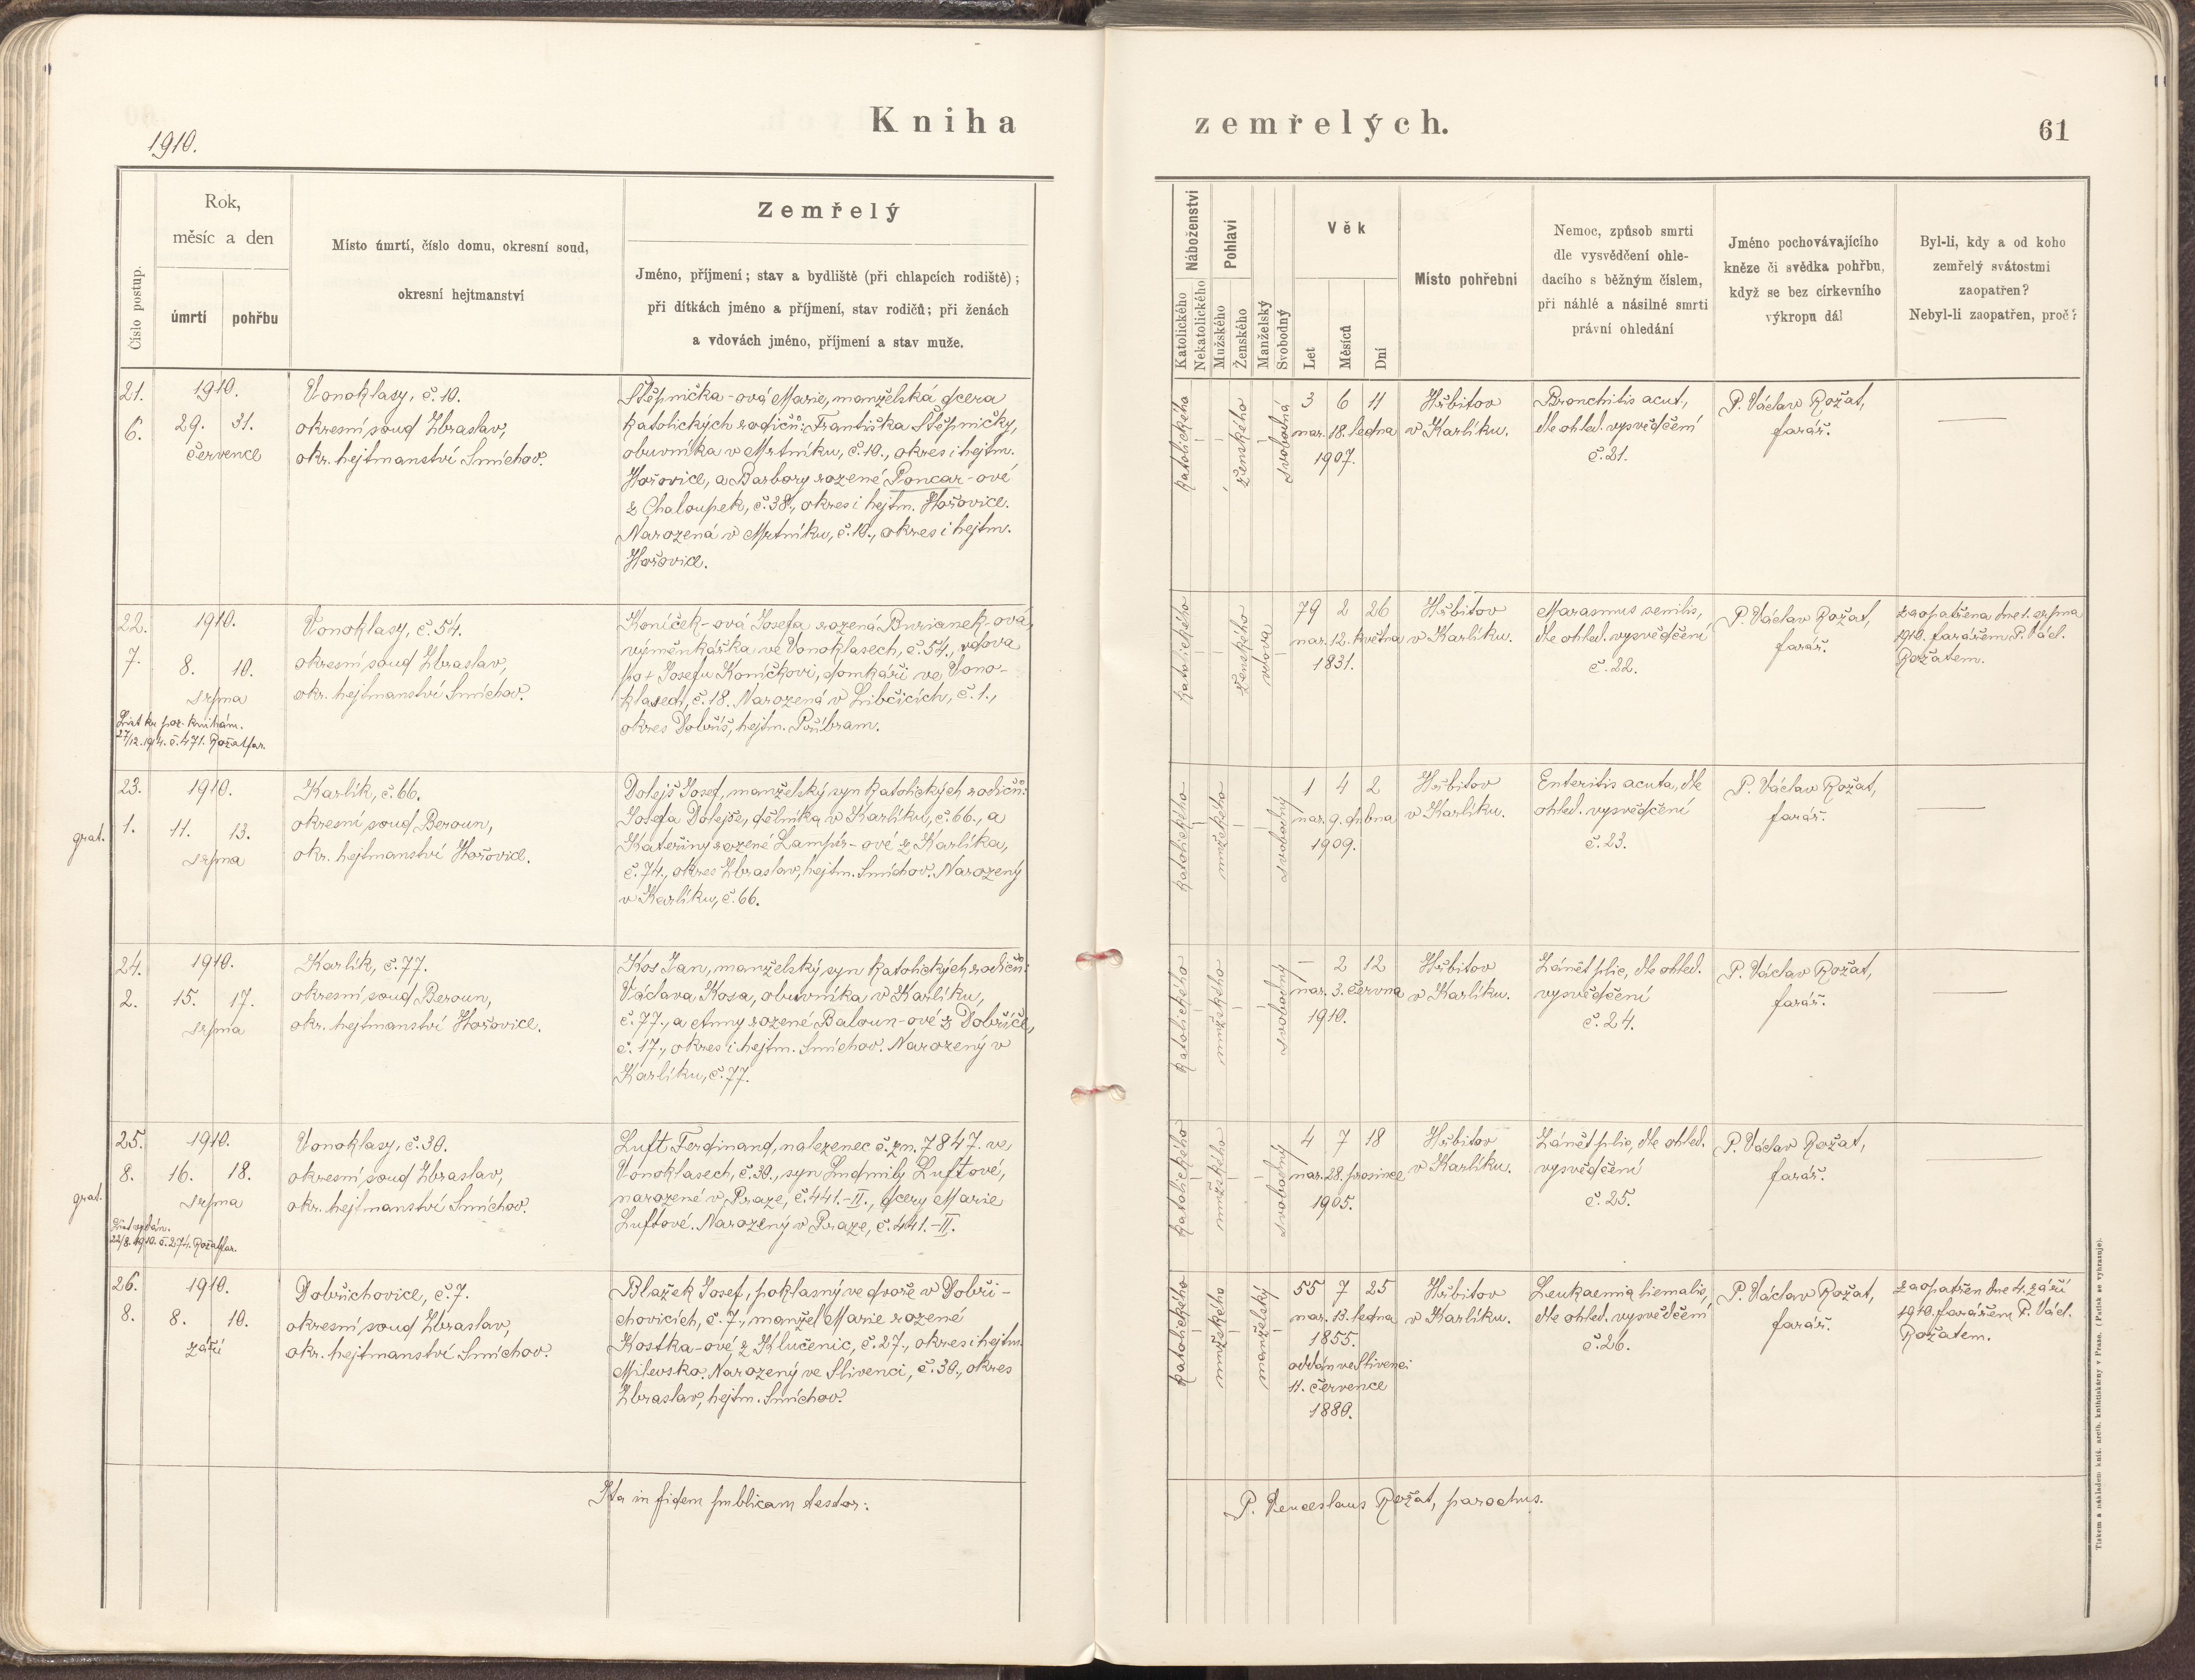 Kniha
zemřelých.
61
1910.
Číslo postup.
Rok,
měsíc a den
úmrtí
pohřbu
Místo úmrtí, číslo domu, okresní soud,
okresní hejtmanství
Zemřelý
Jméno, příjmení; stav a bydliště (při chlapcích rodiště);
při dítkách jméno a příjmení, stav rodičů; při ženách
a vdovách jméno, příjmení a stav muže.
Náboženství
Katolického
Nekatolického
Pohlaví
Mužského
Ženského
Manželský
Svobodný
Věk
Let
Měsíců
Dní
Místo pohřební
Nemoc, způsob smrti
dle vysvědčení ohle-
dacího s běžným číslem,
při náhlé a násilné smrti
právní ohledání
Jméno pochovávajícího
kněze či svědka pohřbu,
když se bez církevního
výkropu dál
Byl-li, kdy a od koho
zemřelý svátostmi
zaopatřen?
Nebyl-li zaopatřen, proč?
21.
6.
1910.
29. 31.
července
Vonoklasy, č. 10.
okresní soud Zbraslav,
okr. hejtmanství Smíchov.
Štěpnička-ová Marie, manželská dcera
katolických rodičů: Františka Štěpničky,
obuvníka v Mrtníku, č. 10., okres i hejtm.
Hořovice, a Barbory rozené Poncar-ové
z Chaloupek, č. 38., okres i hejtm. Hořovice.
Narozená v Mrtníku, č. 10., okres i hejtm.
Hořovice.
katolického
ženského
svobodná
3 6 11
nar. 18. ledna
1907.
Hřbitov
v Karlíku.
Bronchitis acut,
dle ohled. vysvědčení
č. 21.
P. Václav Rožat,
farář.
22.
7.
1910.
8. 10.
srpna
27/12. 1914. č. 471. Rožat far.
Vonoklasy, č. 54.
okresní soud Zbraslav,
okr. hejtmanství Smíchov.
Koníček-ová Josefa rozená Burianek-ová,
výměnkářka ve Vonoklasech, č. 54., vdova
po + Josefu Koníčkovi, domkáři ve Vono-
klasech, č. 18. Narozená v Libčicích, č. 1.,
okres Dobříš, hejtm. Příbram.
katolického
ženského
vdova
79 2 26
nar. 12. května
1831.
Hřbitov
v Karlíku.
Marasmus senilis,
dle ohled. vysvědčení
č. 22.
P. Václav Rožat,
farář.
zaopatřena dne 1. srpna
1910. farářem P. Václ.
Rožatem.
grat.
23.
1.
1910.
11. 13.
srpna
Karlík, č. 66.
okresní soud Beroun,
okr. hejtmanství Hořovice.
Dolejš Josef, manželský syn katolických rodičů:
Josefa Dolejše, dělníka v Karlíku, č. 66., a
Kateřiny rozené Lampír-ové z Karlíka,
č. 74., okres Zbraslav, hejtm. Smíchov. Narozený
v Karlíku, č. 66.
katolického
mužského
svobodný
1 4 2
nar. 9. dubna
1909.
Hřbitov
v Karlíku.
Enteritis acuta, dle
ohled. vysvědčení
č. 23.
P. Václav Rožat,
farář.
24.
2.
1910.
15. 17.
srpna
Karlík, č. 77.
okresní soud Beroun,
okr. hejtmanství Hořovice.
Kos Jan, manželský syn katolických rodičů:
Václava Kosa, obuvníka v Karlíku,
č. 77., a Anny rozené Baloun-ové z Dobříče,
č. 17., okres i hejtm. Smíchov. Narozený v
Karlíku, č. 77.
katolického
mužského
svobodný
– 2 12
nar. 3. června
1910.
Hřbitov
v Karlíku.
Zánět plic, dle ohled.
vysvědčení
č. 24.
P. Václav Rožat,
farář.
grat.
25.
8.
1910.
16. 18.
srpna
22/8. 1910. č. 274. Rožat far.
Vonoklasy, č. 30.
okresní soud Zbraslav,
okr. hejtmanství Smíchov.
Luft Ferdinand, nalezenec č. zn. 7847. ve
Vonoklasech, č. 30., syn Ludmily Luftové,
narozené v Praze, č. 441.-II., dcery Marie
Luftové. Narozený v Praze, č. 441.-II.
katolického
mužského
svobodný
4 7 18
nar. 28. prosince
1905.
Hřbitov
v Karlíku.
Zánět plic, dle ohled.
vysvědčení
č. 25.
P. Václav Rožat,
farář.
26.
8.
1910.
8. 10.
září
Dobřichovice, č. 7.
okresní soud Zbraslav,
okr. hejtmanství Smíchov.
Blažek Josef, poklasný ve dvoře v Dobři-
chovicích, č. 7., manžel Marie rozené
Kostka-ové, z Klučenic, č. 27., okres i hejtm.
Milevsko. Narozený ve Slivenci, č. 30., okres
Zbraslav, hejtm. Smíchov.
katolického
mužského
manželský
55 7 25
nar. 13. ledna
1855.
oddán ve Slivenci
11. července
1880.
Hřbitov
v Karlíku.
Leukaemia liemalis,
dle ohled. vysvědčení
č. 26.
P. Václav Rožat,
farář.
zaopatřen dne 4. září
1910. farářem P. Václ.
Rožatem.
Ita in fidem publicam testor:
P. Venceslaus Rožat, parochus.
Tiskem a nákladem kníž. arcib. knihtiskárny v Praze. (Patisk se vyhrazuje).